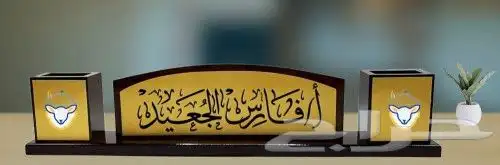 أ فارس الجعيد
حراج